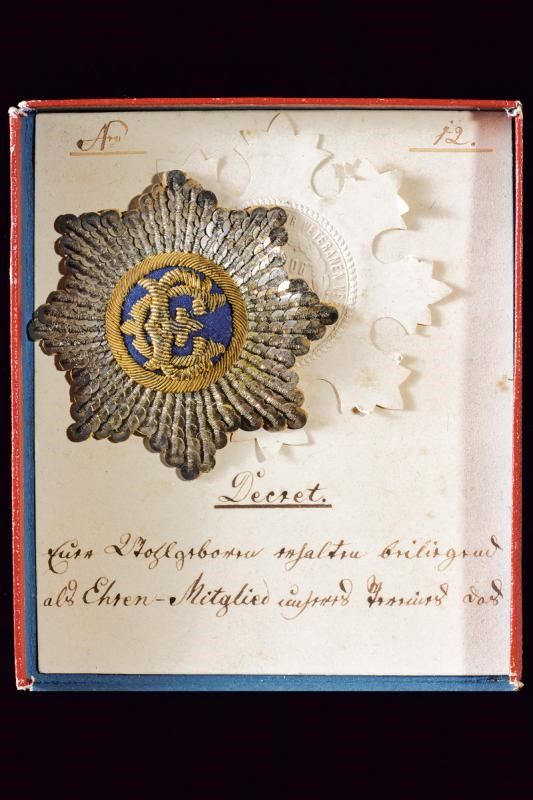 Nro 12.
LITERARISCHER
Decret.
Euer Wohlgeboren erhalten beiliegend
als Ehren-Mitglied unseres Vereines das